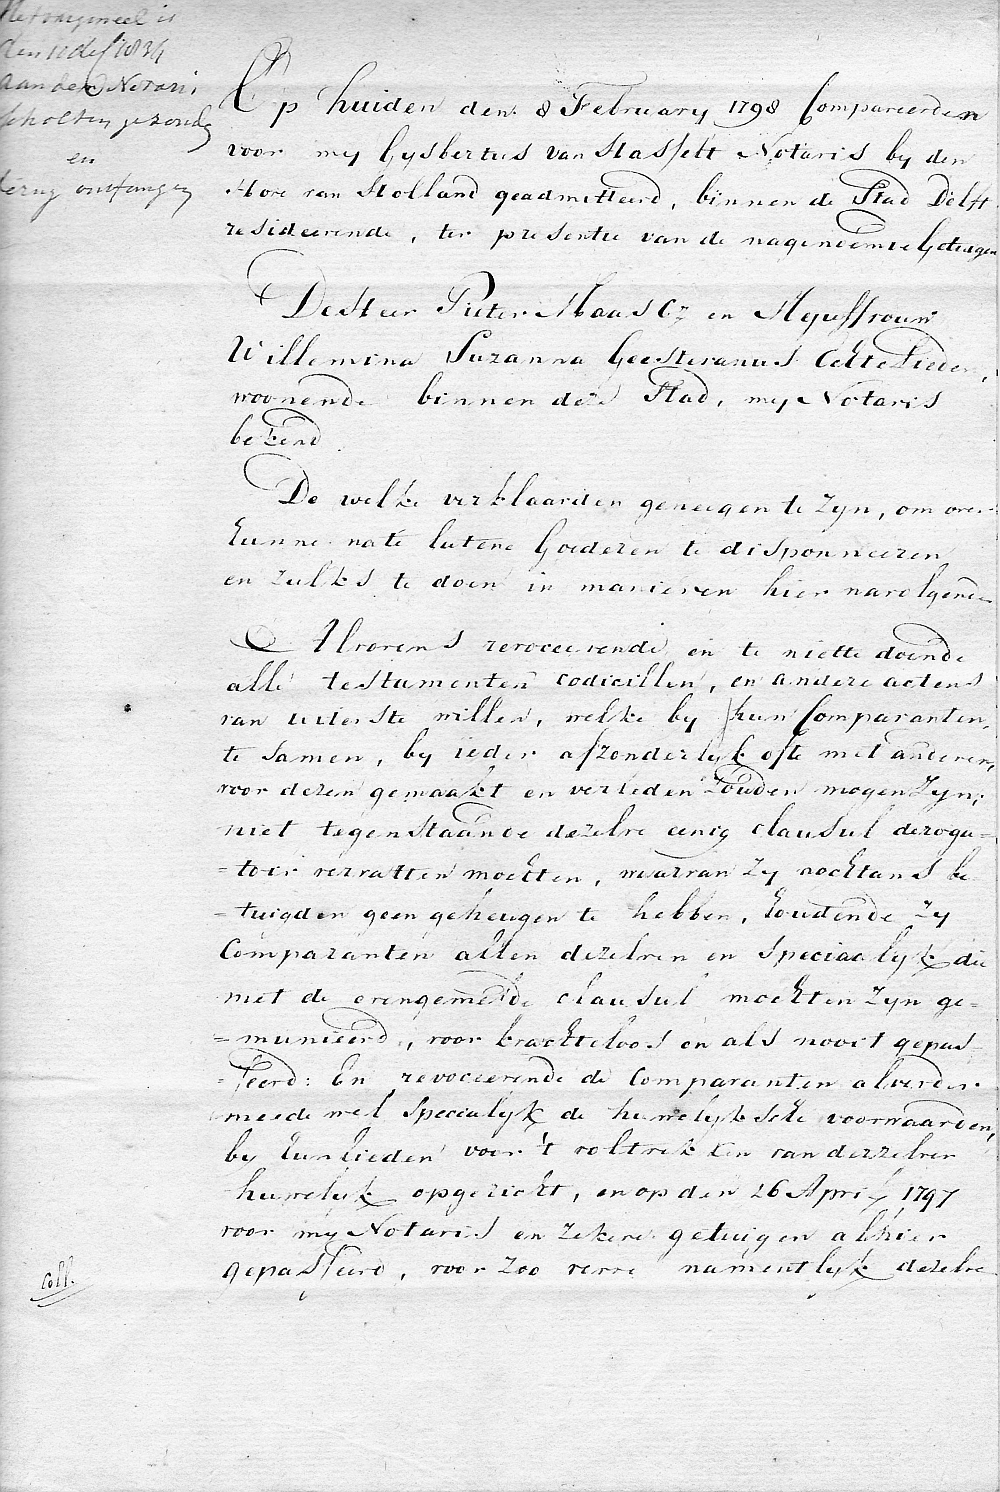 Het origineel is
den 10 dec 1834
aan den Notaris
Scholten gezonde
en
terug ontfangen
Op huiden den 8 February 1798 Compareerden
voor my Gysbertus van Hasselt Notaris by den
Hove van Holland geadmitteerd, binnen de Stad Delft
resideerende, ter presentie van de nagenoemde Getuigen
De Heer Pieter Maas Cz en Mejuffrouw
Willemina Suzanna Geesteranus Echte Lieden,
woonende binnen deze Stad, my Notaris
bekend
De welke verklaarden geneegen te zyn, om over
hunne na te latene Goederen te disponneeren
en zulks te doen in manieren hier navolgende
Alvorens revoceerende en te niette doende
alle testamenten codicillen, en andere actens
van uiterste willen, welke by hun Comparanten,
te samen, by ieder afzonderlyk ofte met anderen,
voor dezen gemaakt en verleden zouden mogen Zyn;
niet tegenstaande dezelve eenig clausul deroga=
=toir vervatten mochten, waarvan zy nochtans be
=tuigden geen geheugen te hebben, houdende zy
Comparanten allen dezelven en speciaalyk die
met de evengemelde clausul mochten zyn ge=
=munieerd, voor krachteloos en als nooit gepas=
=seerd: En revoceerende de Comparanten alverder
meede wel specialyk de huwelyksche voorwaarden,
by hunlieden voor 't voltrekken van derzelver
huwelyk opgericht, en op den 26 April 1797
voor my Notaris en zekere getuigen alhier
gepasseerd, voor zoo verre namentlyk dezelve
Coll.